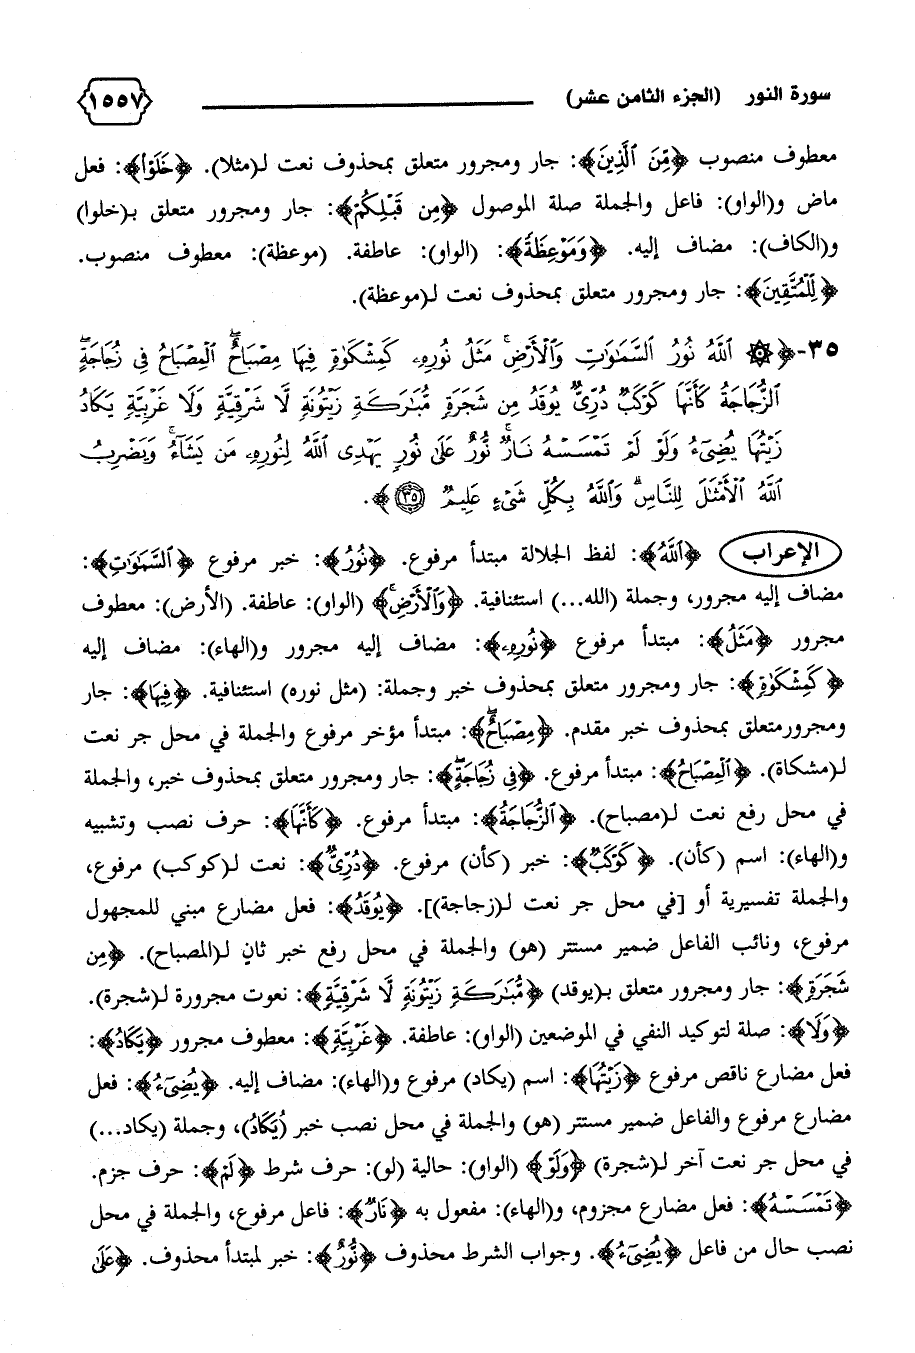 سورة النور (الجزء الثامن عشر) ١٥٥٧
معطوف منصوب ﴿مِّنَ ٱلَّذِينَ﴾: جار ومجرور متعلق بمحذوف نعت لـ(مثلا). ﴿خَلَوْا﴾: فعل
ماض و(الواو): فاعل والجملة صلة الموصول ﴿مِن قَبْلِكُمْ﴾: جار ومجرور متعلق بـ(خلوا)
و(الكاف): مضاف إليه. ﴿وَمَوْعِظَةً﴾: (الواو): عاطفة. (موعظة): معطوف منصوب.
﴿لِّلْمُتَّقِينَ﴾: جار ومجرور متعلق بمحذوف نعت لـ(موعظة).
٣٥-﴿۞ ٱللَّهُ نُورُ ٱلسَّمَٰوَٰتِ وَٱلْأَرْضِ ۚ مَثَلُ نُورِهِۦ كَمِشْكَوٰةٍ فِيهَا مِصْبَاحٌ ۖ ٱلْمِصْبَاحُ فِى زُجَاجَةٍ ۖ
ٱلزُّجَاجَةُ كَأَنَّهَا كَوْكَبٌ دُرِّىٌّ يُوقَدُ مِن شَجَرَةٍ مُّبَٰرَكَةٍ زَيْتُونَةٍ لَّا شَرْقِيَّةٍ وَلَا غَرْبِيَّةٍ يَكَادُ
زَيْتُهَا يُضِىٓءُ وَلَوْ لَمْ تَمْسَسْهُ نَارٌ ۚ نُّورٌ عَلَىٰ نُورٍ ۗ يَهْدِى ٱللَّهُ لِنُورِهِۦ مَن يَشَآءُ ۚ وَيَضْرِبُ
ٱللَّهُ ٱلْأَمْثَٰلَ لِلنَّاسِ ۗ وَٱللَّهُ بِكُلِّ شَىْءٍ عَلِيمٌ ٣٥﴾.
الإعراب ﴿ٱللَّهُ﴾: لفظ الجلالة مبتدأ مرفوع. ﴿نُورُ﴾: خبر مرفوع ﴿ٱلسَّمَٰوَٰتِ﴾:
مضاف إليه مجرور، وجملة (الله...) استئنافية. ﴿وَٱلْأَرْضِ ۚ﴾ (الواو): عاطفة. (الأرض): معطوف
مجرور ﴿مَثَلُ﴾: مبتدأ مرفوع ﴿نُورِهِۦ﴾: مضاف إليه مجرور و(الهاء): مضاف إليه
﴿كَمِشْكَوٰةٍ﴾: جار ومجرور متعلق بمحذوف خبر وجملة: (مثل نوره) استئنافية. ﴿فِيهَا﴾: جار
ومجرورمتعلق بمحذوف خبر مقدم. ﴿مِصْبَاحٌ ۖ﴾: مبتدأ مؤخر مرفوع والجملة في محل جر نعت
لـ(مشكاة). ﴿ٱلْمِصْبَاحُ﴾: مبتدأ مرفوع. ﴿فِى زُجَاجَةٍ ۖ﴾: جار ومجرور متعلق بمحذوف خبر، والجملة
في محل رفع نعت لـ(مصباح). ﴿ٱلزُّجَاجَةُ﴾: مبتدأ مرفوع. ﴿كَأَنَّهَا﴾: حرف نصب وتشبيه
و(الهاء): اسم (كأن). ﴿كَوْكَبٌ﴾: خبر (كأن) مرفوع. ﴿دُرِّىٌّ﴾: نعت لـ(كوكب) مرفوع،
والجملة تفسيرية أو [في محل جر نعت لـ(زجاجة)]. ﴿يُوقَدُ﴾: فعل مضارع مبني للمجهول
مرفوع، ونائب الفاعل ضمير مستتر (هو) والجملة في محل رفع خبر ثانٍ لـ(المصباح). ﴿مِن
شَجَرَةٍ﴾: جار ومجرور متعلق بـ(يوقد) ﴿مُّبَٰرَكَةٍ زَيْتُونَةٍ لَّا شَرْقِيَّةٍ﴾: نعوت مجرورة لـ(شجرة).
﴿وَلَا﴾: صلة لتوكيد النفي في الموضعين (الواو): عاطفة. ﴿غَرْبِيَّةٍ﴾: معطوف مجرور ﴿يَكَادُ﴾:
فعل مضارع ناقص مرفوع ﴿زَيْتُهَا﴾: اسم (يكاد) مرفوع و(الهاء): مضاف إليه. ﴿يُضِىٓءُ﴾: فعل
مضارع مرفوع والفاعل ضمير مستتر (هو) والجملة في محل نصب خبر (يَكَادُ)، وجملة (يكاد...)
في محل جر نعت آخر لـ(شجرة) ﴿وَلَوْ﴾ (الواو): حالية (لو): حرف شرط ﴿لَمْ﴾: حرف جزم.
﴿تَمْسَسْهُ﴾: فعل مضارع مجزوم، و(الهاء): مفعول به ﴿نَارٌ﴾: فاعل مرفوع، والجملة في محل
نصب حال من فاعل ﴿يُضِىٓءُ﴾. وجواب الشرط محذوف ﴿نُّورٌ﴾: خبر لمبتدأ محذوف. ﴿عَلَىٰ